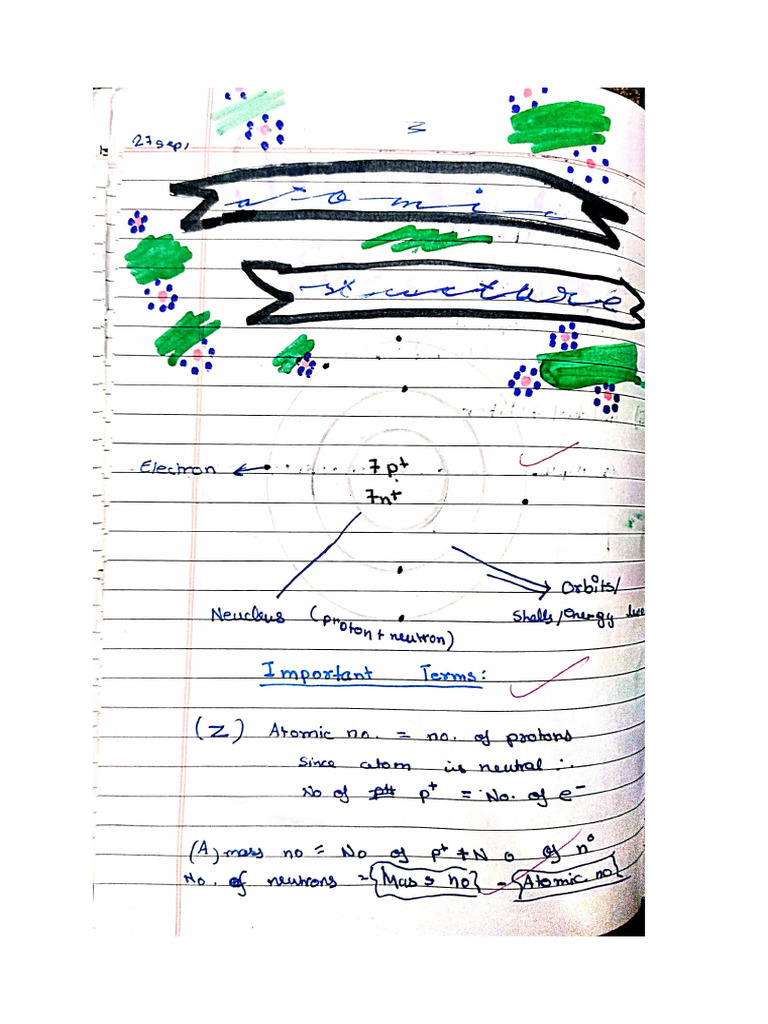 3
27 sep,
atomic
structure
Electron
7 p+
7n+
Orbits/
Shells/energy
Neucleus (proton + neutron)
Important Terms:
(Z) Atomic no. = no. of protons
Since atom is neutral ∴
No of p+ = No. of e⁻
(A) mass no = No of p+ + No of n⁰
No. of neutrons = {Mass no} - {Atomic no}